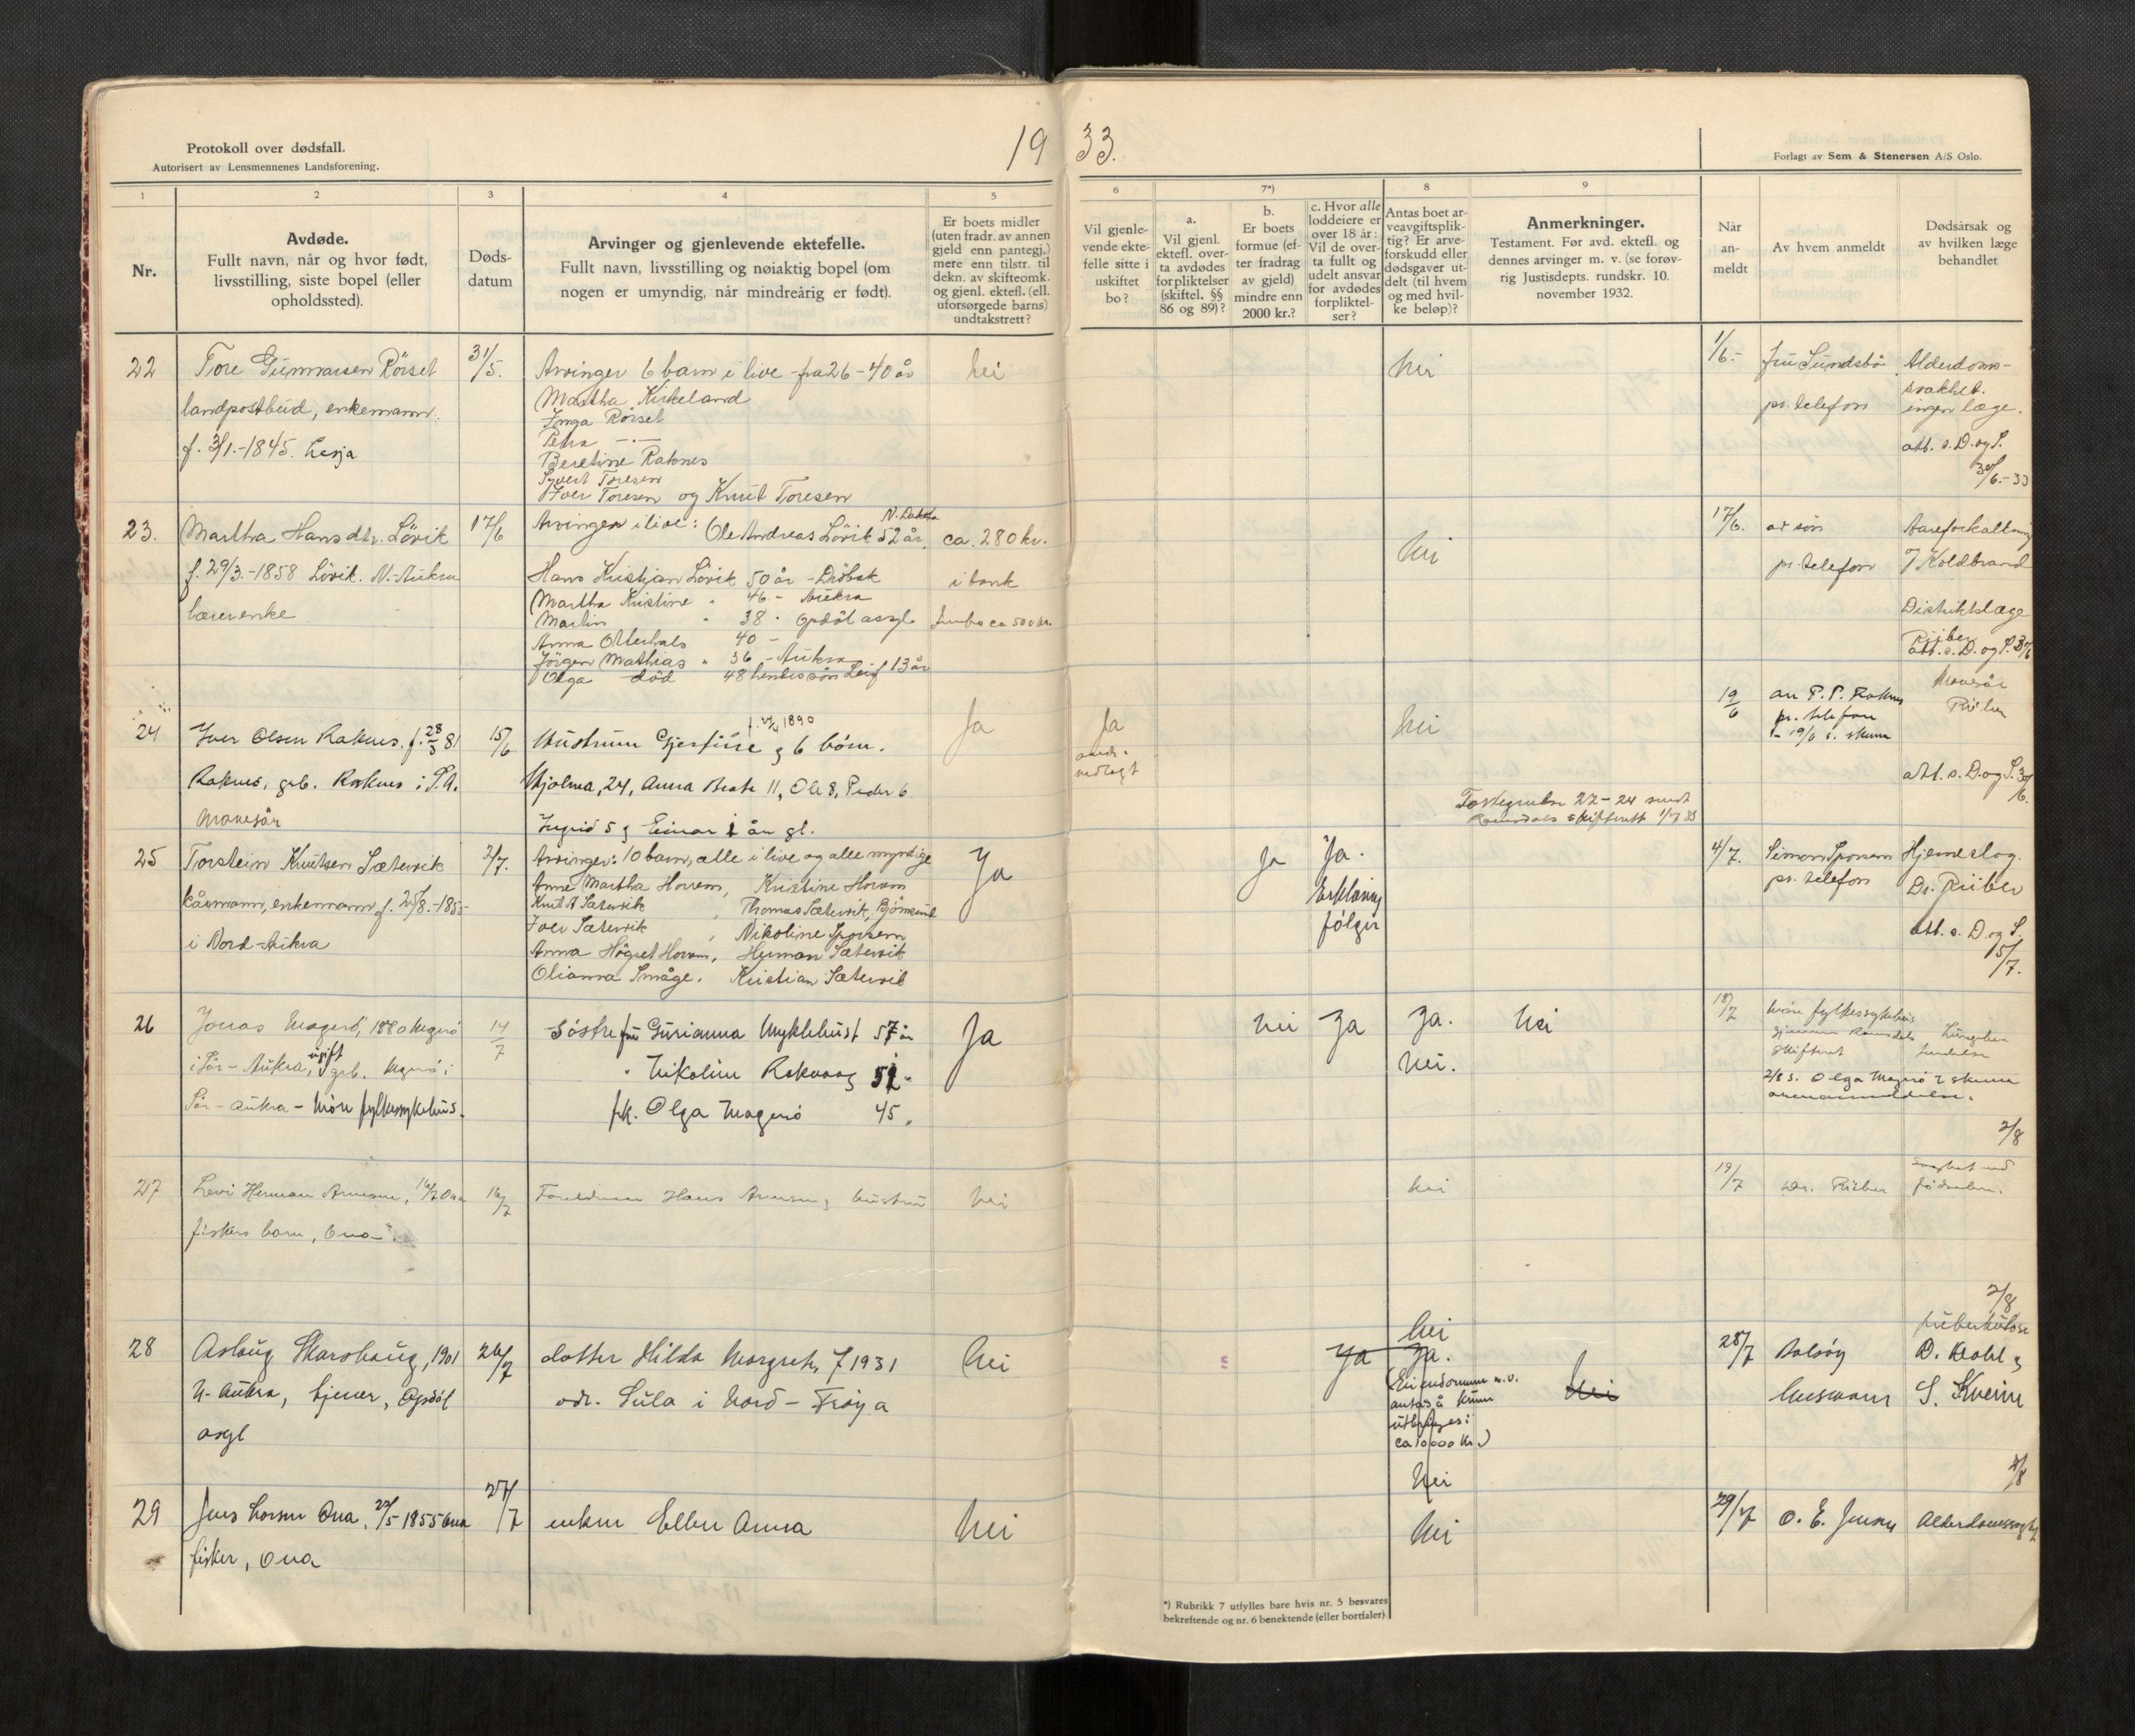 Protokoll over dødsfall.
Autorisert av Lensmennenes Landsforening.
19 33.
Forlagt av Sem & Stenersen A/S Oslo.
1 2 3 4 5 6 7*) 8 9
Nr.
Avdøde.
Fullt navn, når og hvor født,
livsstilling, siste bopel (eller
opholdssted).
Døds-
datum
Arvinger og gjenlevende ektefelle.
Fullt navn, livsstilling og nøiaktig bopel (om
nogen er umyndig, når mindreårig er født).
Er boets midler
(uten fradr. av annen
gjeld enn pantegj.)
mere enn tilstr. til
dekn. av skifteomk.
og gjenl. ektefl. (ell.
uforsørgede barns)
undtakstrett?
Vil gjenle-
vende ekte-
felle sitte i
uskiftet
bo?
a.
Vil gjenl.
ektefl. over-
ta avdødes
forpliktelser
(skiftel. §§
86 og 89)?
b.
Er boets
formue (ef-
ter fradrag
av gjeld)
mindre enn
2000 kr.?
c. Hvor alle
loddeiere er
over 18 år:
Vil de over-
ta fullt og
udelt ansvar
for avdødes
forpliktel-
ser?
Antas boet ar-
veavgiftsplik-
tig? Er arve-
forskudd eller
dødsgaver ut-
delt (til hvem
og med hvil-
ke beløp)?
Anmerkninger.
Testament. Før avd. ektefl. og
dennes arvinger m. v. (se forøv-
rig Justisdepts. rundskr. 10.
november 1932.
Når
an-
meldt
Av hvem anmeldt
Dødsårsak og
av hvilken læge
behandlet
22
Tore Gunnarsen Rörset
landpostbud, enkemann.
f. 3/1.-1845. Lesja
31/5.
Arvinger 6 barn i live - fra 26-40 år
Martha Kirkeland
Inga Rörset
Petra -"-
Beretine Raknes
Syvert Toresen
Iver Toresen og Knut Toresen
nei
nei
1/6.-
fru Sundsbö
pr. telefon
Alderdoms-
svakhet.
ingen læge.
att. s. D. og S.
30/6.-33
23.
Martha Hansdtr. Lövik
f. 29/3.-1858 Lövik. N.-Aukra
lærerenke
17/6
Arvinger i live: Ole Andreas Lövik 52 år, N. Dakota
Hans Kristjan Lövik 50 år - Dröbak
Martha Kristine " 46 - Aukra
Martin " 38 " Opdöl assyl.
Anna Otterhals 40 -
Jörgen Mathias " 36 - Aukra
Olga död 48 hendes sön Leif 13 år
ca. 280 kr.
i bank
Innbo ca 500 kr.
nei
17/6.
av sön
pr. telefon
Aareforkalkning
Koldbrand
Distriktslæge
Riiber
att. s. D. og S. 30/6
24
Iver Olsen Raknes. f. 28/3 81
Raknes, grb. Raknes i S. A.
15/6
Hustrum Gjertine og 6 börn.
Hjalma, 24, Anna Beate 11, Ole 8, Peder 6
Ingrid 5 og Einar 1 år gl.
Ja
Ja
vedlagt
nei
19/6
av P. P. Raknes
pr. telefon
Riiber
att. s. D. og S. 30/6.
Ramsdals skifterett
25
Torstein Knutsen Sætervik
kårmann, enkemann f. 25/8.-1855-
i Nord-Aukra
2/7.
Arvinger: 10 barn, alle i live og alle myndige
Anne Martha Horrem, Kristine Horrem
Knut A Sætervik, Thomas Sætervik, Björnsund
Iver Sætervik, Nikoline Sporsem
Anna Högset Horrem, Herman Sætervik
Olianna Småge, Kristian Sætervik
Ja
Ja
Ja.
Erklæring
fölger
4/7.
Simon Sporsem
pr. telefon
Hjerneslag.
Dr. Riiber
att. s. D. og S.
15/7.
26
Jonas Magerö, 1880 Magerö
i Sör-Aukra, ugift grb. Magerö i
Sör-Aukra - Möre fylkessykehus.
14/7
Söstre fru Gurianna Myklebust 57 år
" Nikoline Rakvaag 51 "
frk. Olga Magerö 45 "
Ja
nei
Ja
Ja.
nei.
Nei
18/7
Möre fylkessykehus
gjennem Romsdals
skifterett
2/8 s. Olga Magerö
Lungebe-
tendelse
2/8
27
Levi Herman Arnesen, 16/7 Ona
fiskers barn, Ona
16/7
Foreldrene Hans Arnesen og hustru
nei
nei
19/7
Dr. Riiber
Svaghet ved
födselen.
2/8
28
Aslaug Skarshaug, 1901
N-Aukra, tjener, Opdöl
asyl
26/7
datter Hilda Margrete f 1931
adr. Sula i Nord-Fröya
Nei
Ja
nei
Ja.
(Eiendommen m.v.
antas å kunne
utbringes i
ca 10000 kr.)
nei
Nei
28/7
tuberkulose
D. Dahl og
S. Kveine
2/8
29
Jens Larsen Ona, 22/5-1855 Ona
fisker, Ona
27/7
enken Ellen Anna
Nei
Nei
29/7
O. E. Jensen
Alderdomssvaghet
*) Rubrikk 7 utfylles bare hvis nr. 5 besvares
bekreftende og nr. 6 benektende (eller bortfaler)